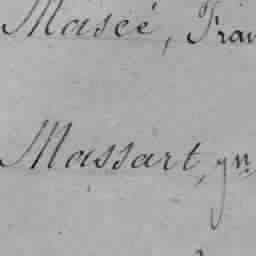 Maseé, Fran
Massart, gn